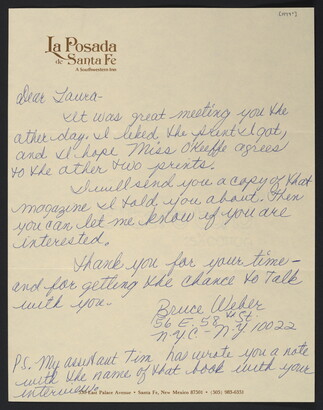 [1984?]
La Posada
de Santa Fe
A Southwestern Inn
Dear Laura-
It was great meeting you the
other day. I liked the print I got,
and I hope Miss O'Keeffe agrees
to the other two prints.
I will send you a copy of that
magazine I told you about. Then
you can let me know if you are
interested.
Thank you for your time-
and for getting the chance to talk
with you-
Bruce Weber
36 E. 58th St.
NYC - N.Y 10022
PS. My assistant Tim has wrote you a note
with the name of that book with your
interview.
East Palace Avenue • Santa Fe, New Mexico 87501 • (505) 983-0351